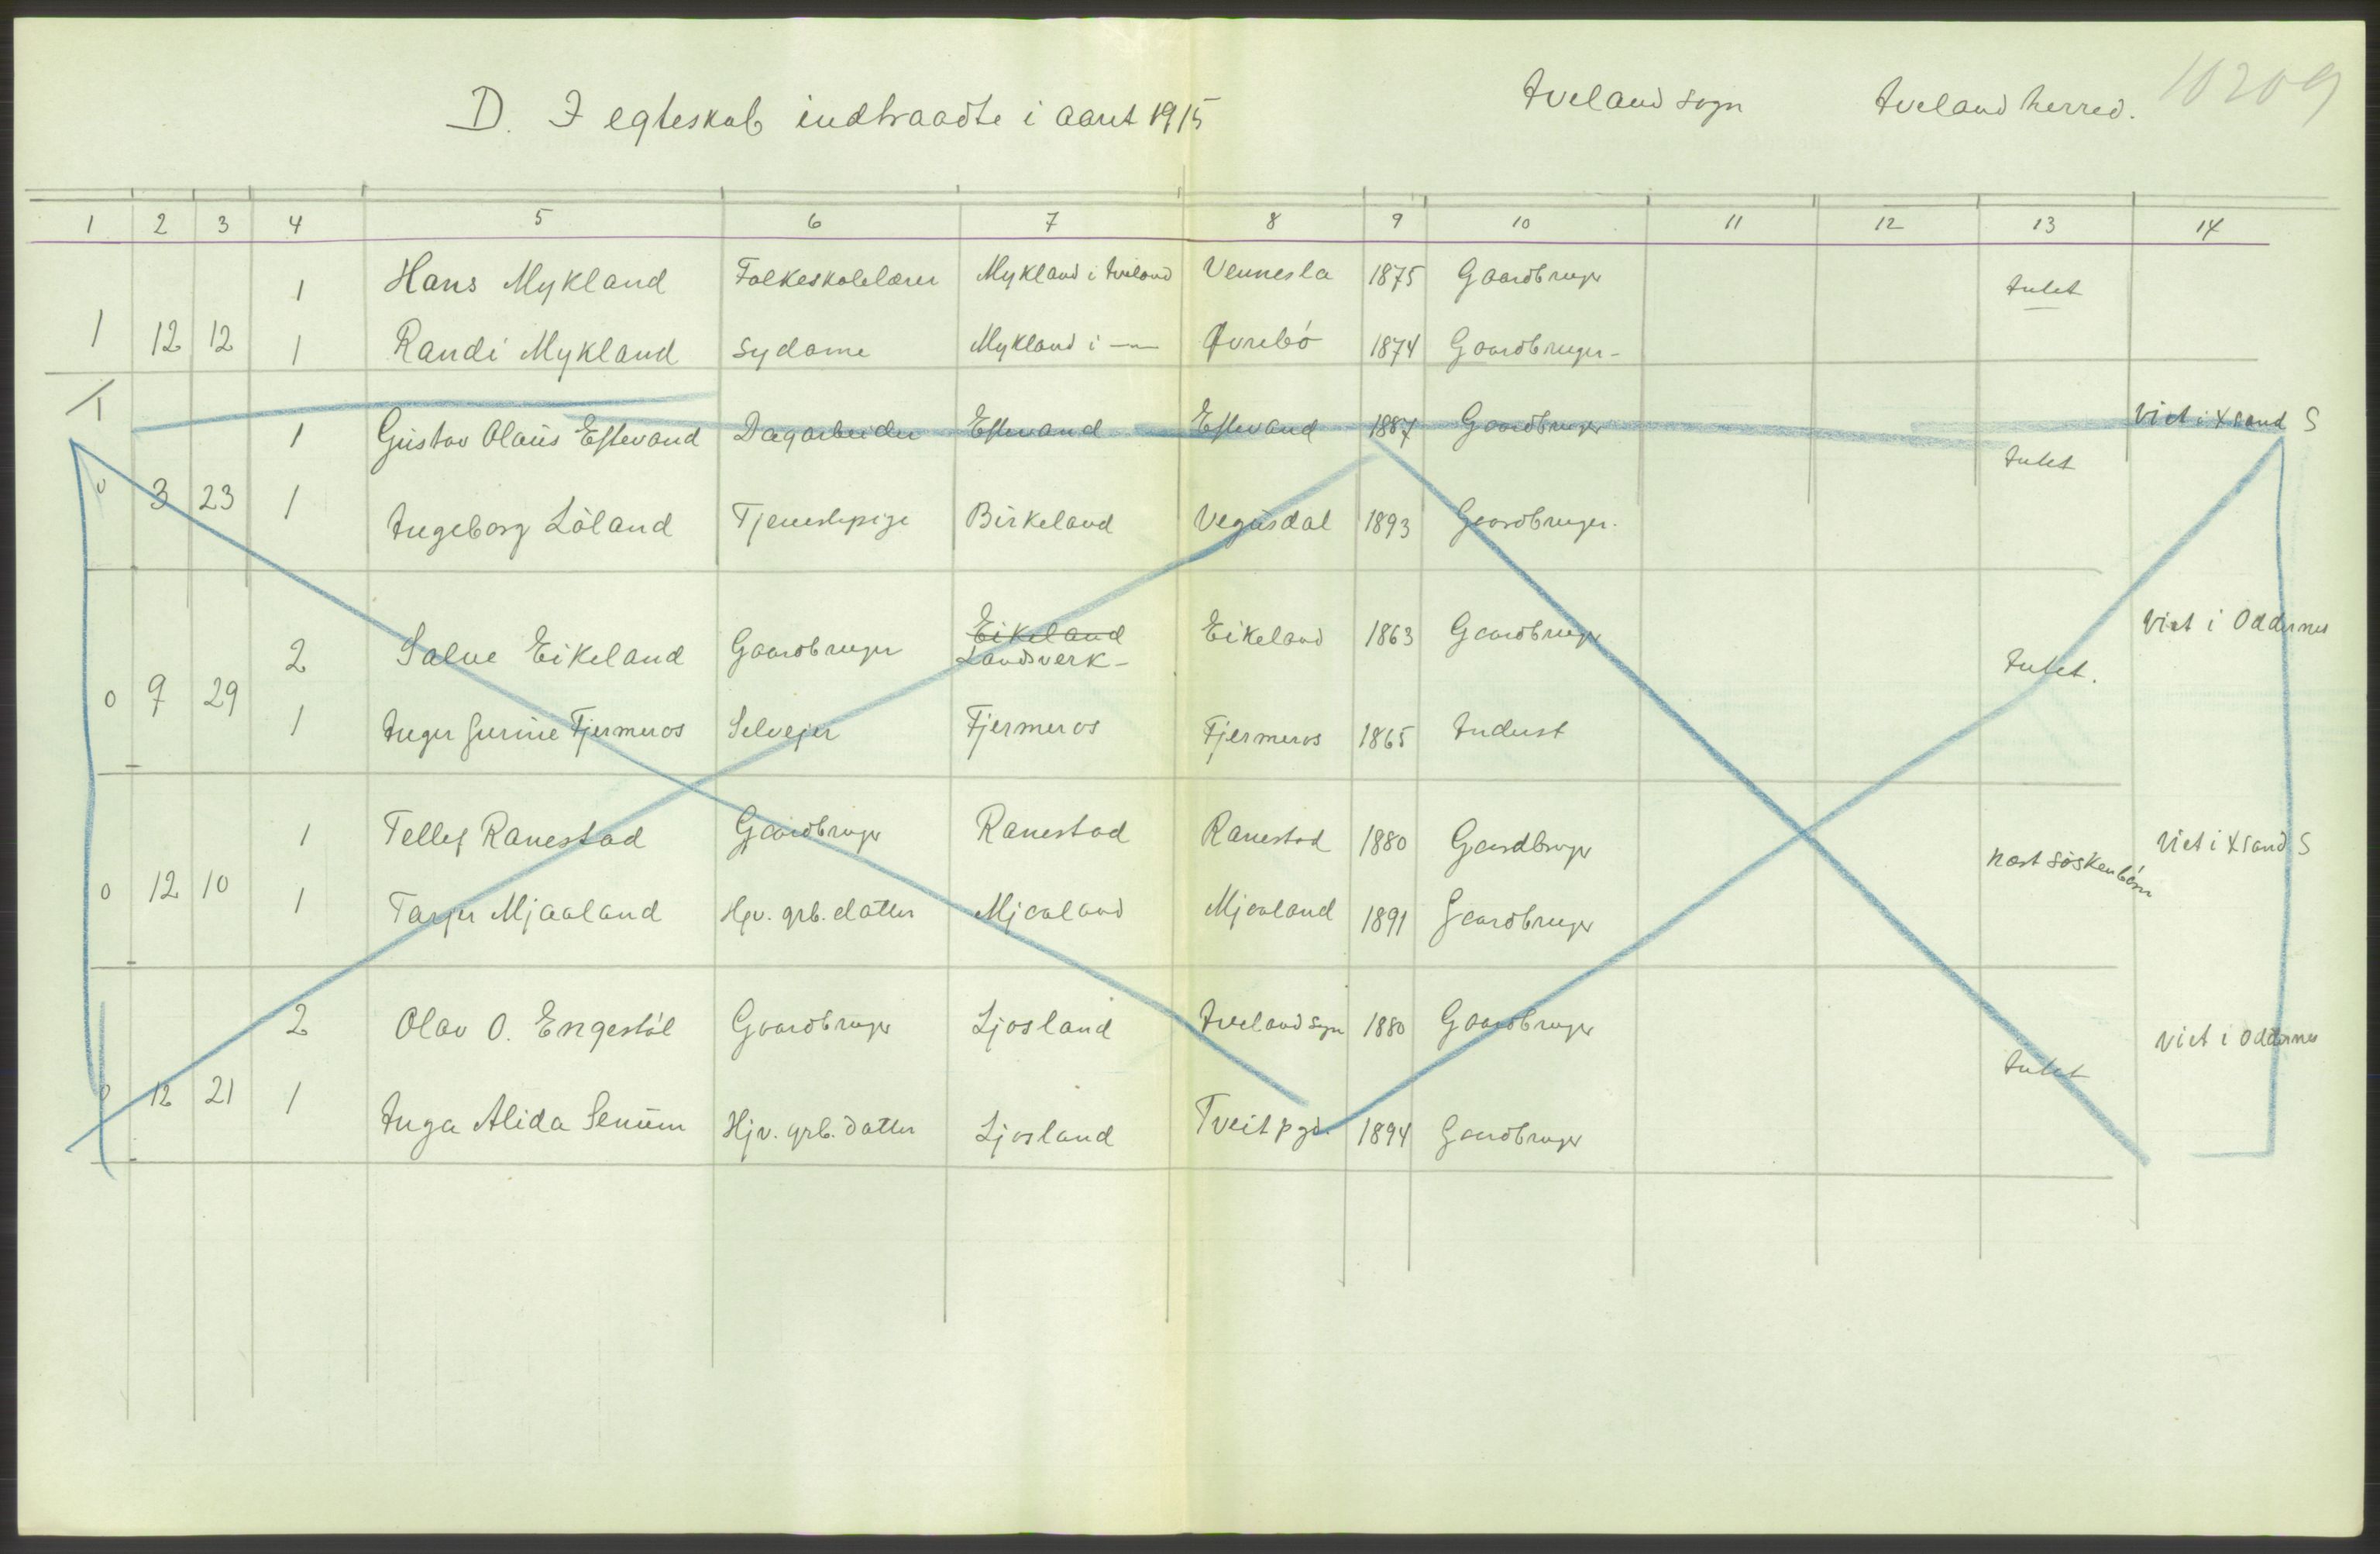 D. I egteskab indtraadte i aaret 1915 Iveland sogn Iveland herred. 10209
1 2 3 4 5 6 7 8 9 10 11 12 13 14
1 Hans Mykland Folkeskolelærer Mykland i Iveland Vennesla 1875 Gaardbruger Intet
1 12 12 1 Randi Mykland Sydame Mykland i —"— Øvrebö 1874 Gaardbruger -
1
1 Gustav Olaus Eftevand Dagarbeider Eftevand Eftevand 1887 Gaardbruger Viet i Xsand S
Intet
0 3 23 1 Ingeborg Löland Tjenestepige Birkeland Vegusdal 1893 Gaardbruger.
2 Salve Eikeland Gaardbruger Eikeland Eikeland 1863 Gaardbruger Viet i Oddernes
Landsverk - Intet.
0 9 29 1 Inger Gurine Fjermeros Selvejer Fjermeros Fjermeros 1865 Indust
1 Tellef Ranestad Gaardbruger Ranestad Ranestad 1880 Gaardbruger Viet i Xsand S
næst söskenbörn
0 12 10 1 Tarjer Mjaaland Hjv. grb. datter Mjaaland Mjaaland 1891 Gaardbruger
2 Olav O. Engestöl Gaardbruger Ljosland Iveland sogn 1880 Gaardbruger Viet i Oddernes
Intet
0 12 21 1 Inga Alida Senum Hjv. grb. datter Ljosland Tveit pgd. 1894 Gaardbruger